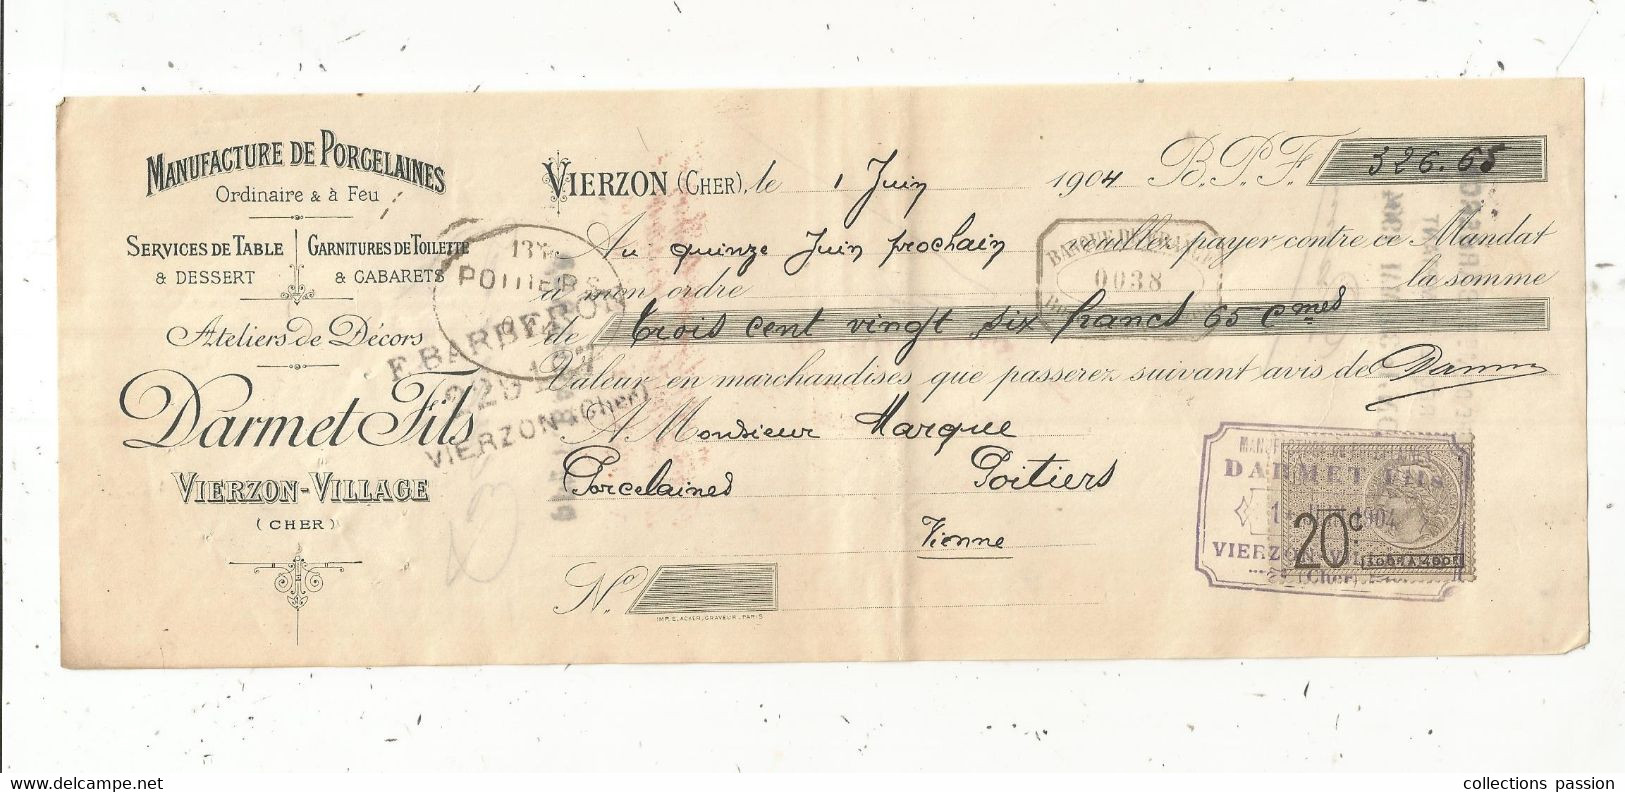 MANUFACTURE DE PORCELAINES
Ordinaire & à Feu
SERVICES DE TABLE
& DESSERT
GARNITURES DE TOILETTE
& CABARETS
Ateliers de Décors
Darmet Fils
VIERZON-VILLAGE
(CHER)
VIERZON (CHER), le 1 Juin 1904 B.P.F. 326.65
Au quinze Juin prochain veuillez payer contre ce Mandat
à mon ordre la somme
de trois cent vingt six francs 65 cmes
Valeur en marchandises que passerez suivant avis de Darmet
A Monsieur Marque
Porcelaines Poitiers
Vienne
No
IMP. E. ACKER, GRAVEUR, PARIS
POITIERS
E. BARBERON
VIERZON (Cher)
0038
DARMET Fils
1904
VIERZON
(Cher)
20c
collections passion